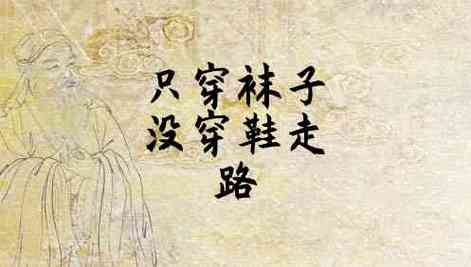 只穿袜子
没穿鞋走
路